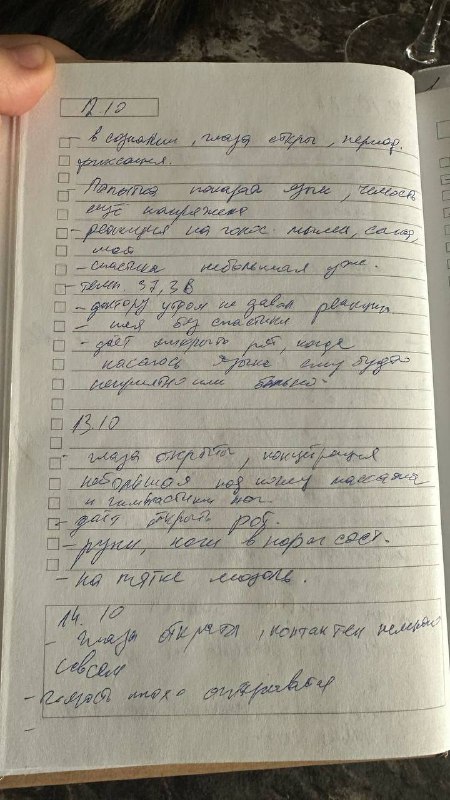 12.10
- в сознании, глаза откры, период.
фиксация.
- Попытка показать язык, челюсть
ещё напряжена
- реакция на голос мамы, Саши,
моя
- спастика небольшая уже.
- темп. 37,3 в
- доктору утром не давал реакции.
- шея без спастики
- даёт открыть рот, когда
касалась языка ему будто
неприятно или больно.
13.10
- глаза открыты, концетрация
небольшая под конец массажа
и гимнастики ног.
- даёт открыть рот.
- руки, ноги в норм сост.
- на пятке мозоль.
14.10
- Глаза открыты, контактен немного
совсем
- челюсть плохо открывает